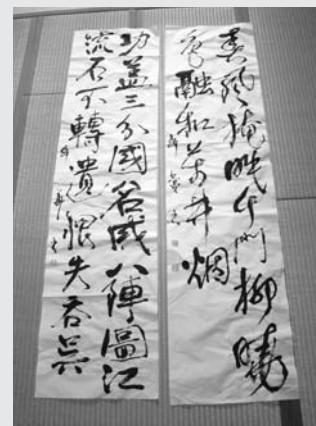 春風掩映千門柳曉
色融和萬井烟
功蓋三分國名成八陣圖江
流石不轉遺恨失吞吳